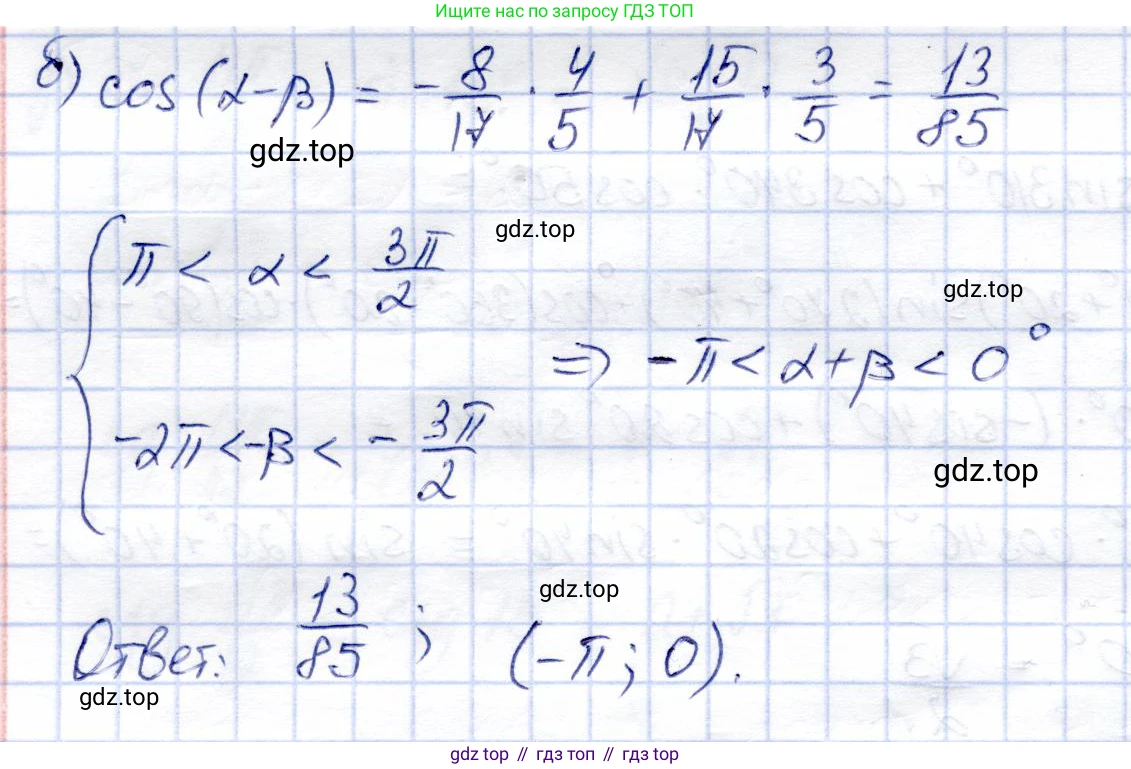 Ищите нас по запросу ГДЗ ТОП
б) cos(α-β) = -8/17 · 4/5 + 15/17 · 3/5 = 13/85
gdz.top
gdz.top
π < α < 3π/2
gdz.top
=> -π < α+β < 0°
-2π < -β < -3π/2
gdz.top
gdz.top
Ответ: 13/85 ; (-π; 0).
gdz.top
gdz top // гдз топ // гдз top